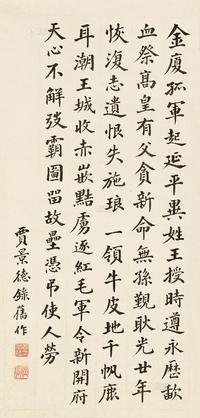 金廈孤軍起延平異姓王授時遵永歷歃
血祭高皇有父貪新命無孫覲耿光廿年
恢復志遺恨失施琅一領牛皮地千帆鹿
耳潮王城收赤嵌黠虜逐紅毛軍令新開府
天心不解弢霸圖留故壘憑弔使人勞
賈景德錄舊作